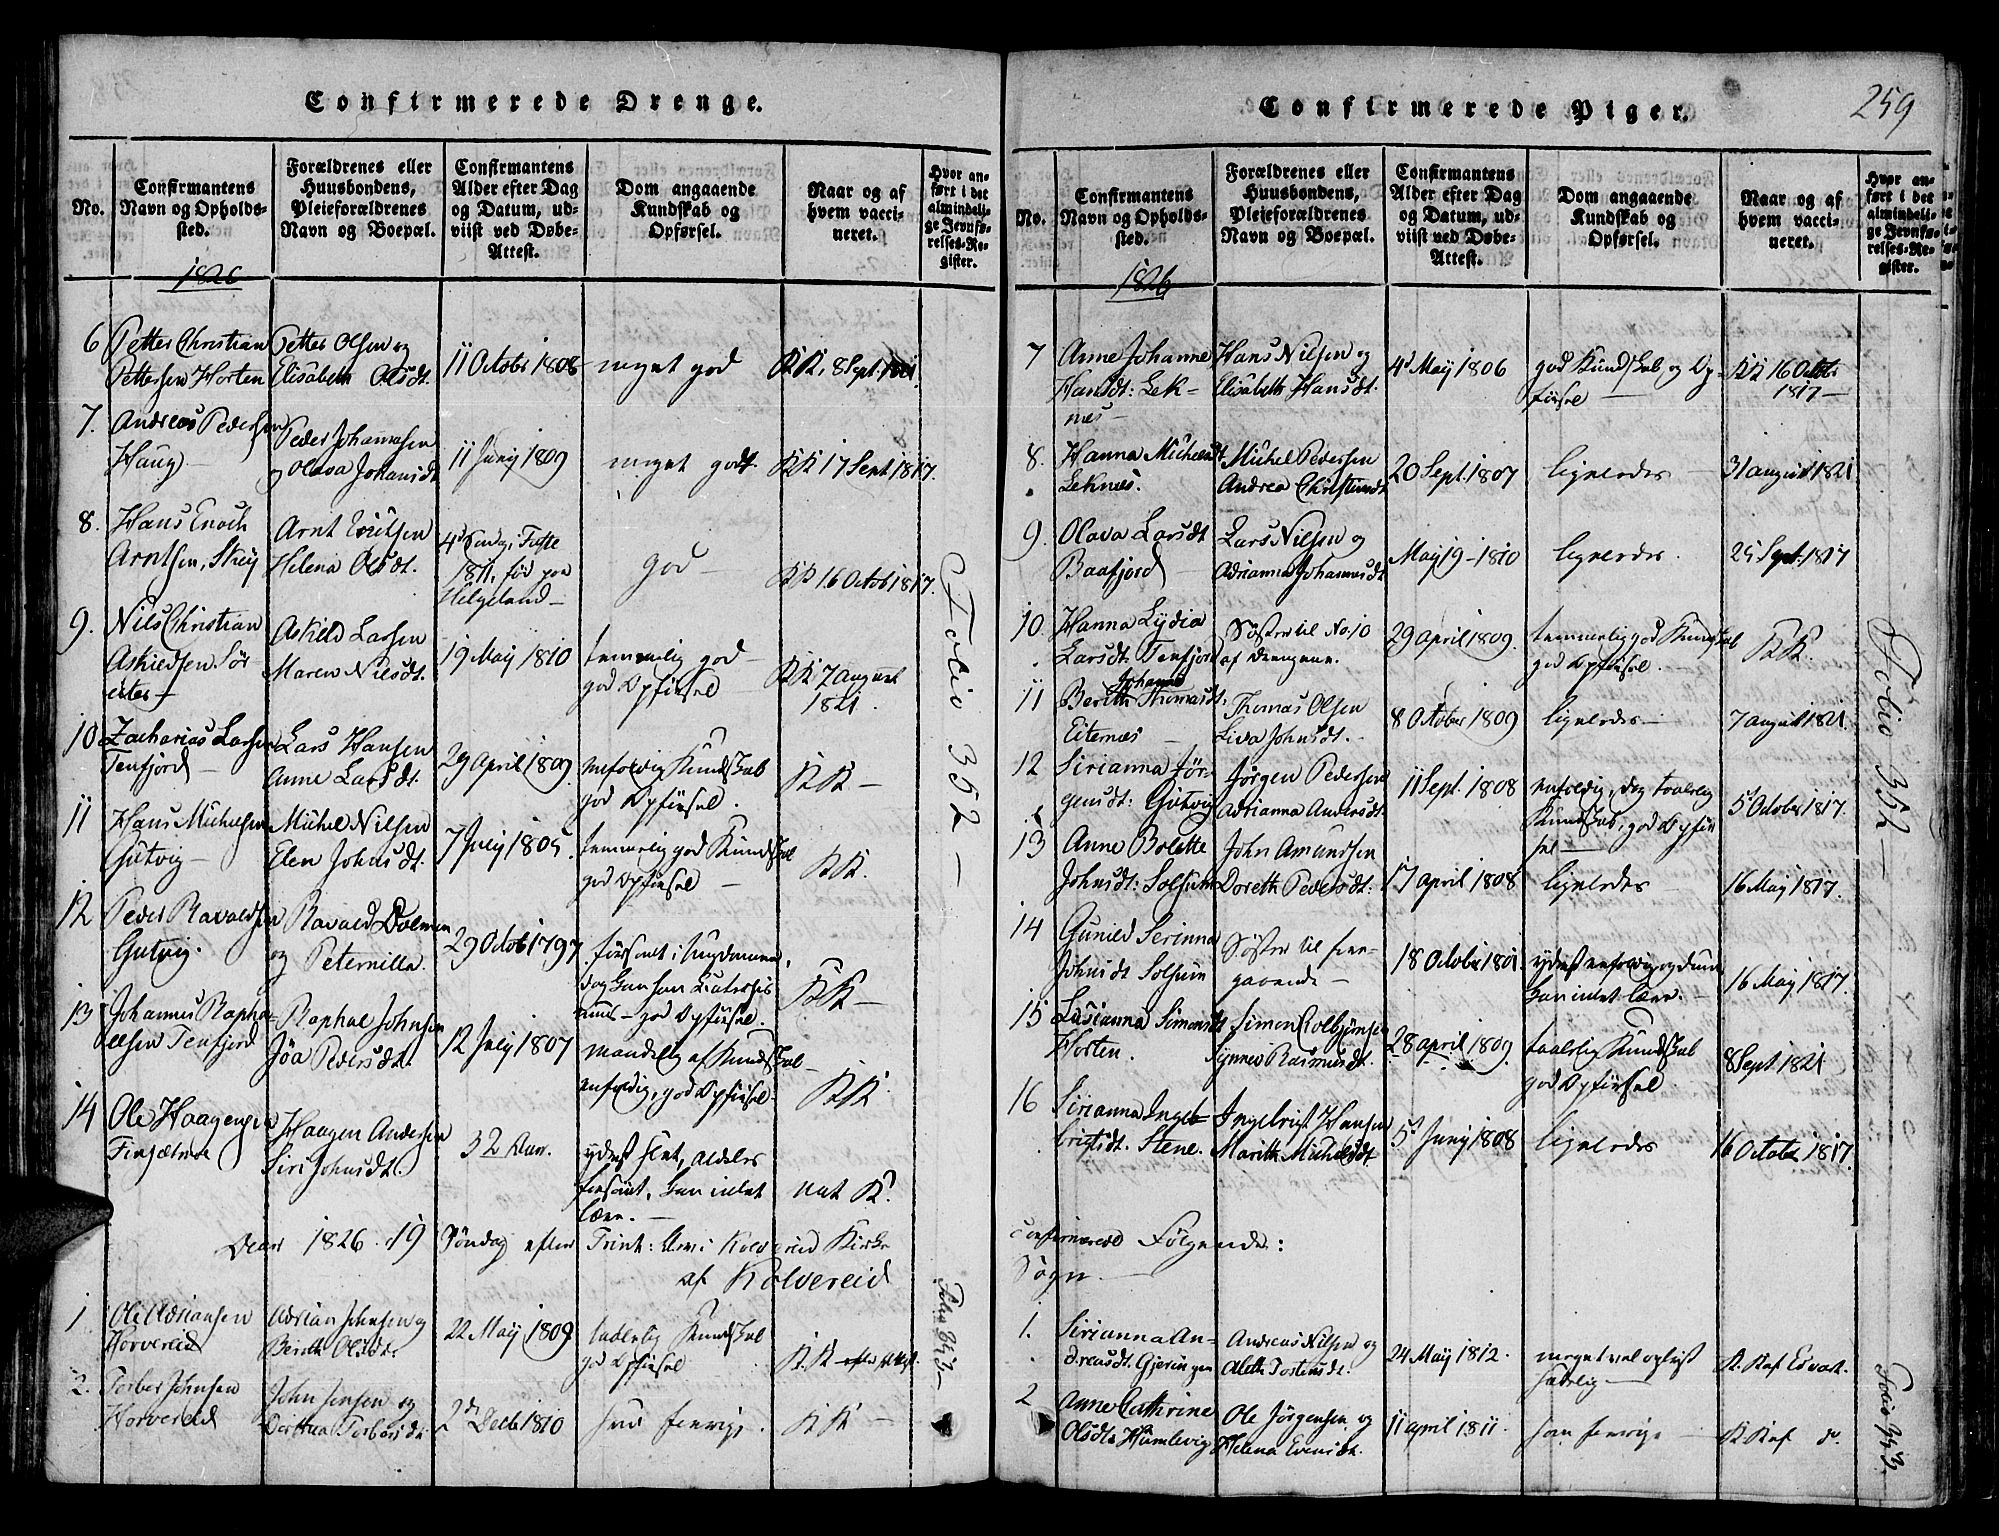 Confirmerede Drenge.
No.
Confirmantens
Navn og Opholds-
sted.
Forældrenes eller
Huusbondens,
Pleieforældrenes
Navn og Boepæl.
Confirmantens
Alder efter Dag
og Datum, ud-
viist ved Døbe-
Attest.
Dom angaaende
Kundskab og
Opførsel.
Naar og af
hvem vacci-
neret.
Hvor an-
ført i det
almindeli-
ge Jevnfø-
relses-Re-
gister.
1826
6 Petter Christian
Pettersen Horten
Petter Olsen og
Elisabeth Olsdt.
11 Octobr 1808
meget god
KK, 8 Sept.
7. Andreas Pedersen
Haug
Peder Johannesen
og Olava Johansdt
11 Junj 1809
meget godt
KK 17 Sept 1817.
8. Hans Enoch
Arntsen, Skej
Arnt
Helena Olsdt.
4d Søndag i Faste
1811, fød paa
Helgeland
god
KK 16 Octob 1817.
9. Nils Christian
Askildsen Sør-
Askild Larsen
Maren Nilsdt.
19 Maj 1810
temmelig god
god Opførsel
KK 7 august
1821.
10 Zacharias Larsen
Tenfjord
Lars Hansen
Anne Larsdt.
29 april 1809.
Kundskab
god Opførsel.
KK
11 Hans Michelsen
Gutvig
Michel Nilsen
Elen Johnsdt.
7 July 1805.
temmelig god Kundskab
god Opførsel
KK.
12 Peder Ravaldsen
Gutvig.
Ravald
og Peternilla.
29 Octob 1797
forsømt i Ungdommen,
dog kan han
god Opførsel
KK
13 Johannes Rapha-
elsen Tenfjord
Raphael Johnsen
Jøa Pedersdt.
12 July 1807
maadelig af Kundskab
enfoldig, god Opførsel
KK.
14 Ole Haagensen
Haagen Andersen
Siri Johnsdt.
32 Aar.
ydmt
forsømt, kan intet
lære.
nat K.
1826. d 19 Søndag efter Trinit: i Kolvereid Kirke
af Kolvereid
1 Ole Adriansen
Horvereid
Adrian Johnsen og
Berith Olsdt.
22 Maj 1809
Kundskab
god Opførsel
K.K
2. Torber Johnsen
Horvereid
John Jensen og
Dorthea Torbersdt.
2d Decb 1810
som forrige.
KK
Folio 352
Folio 353
259
Confirmerede Piger.
No.
Confirmantens
Navn og Opholds-
sted.
Forældrenes eller
Huusbondens,
Pleieforældrenes
Navn og Boepæl.
Confirmantens
Alder efter Dag
og Datum, ud-
viist ved Døbe-
Attest.
Dom angaaende
Kundskab og
Opførsel.
Naar og af
hvem vacci-
neret.
Hvor an-
ført i det
almindeli-
ge Jevnfø-
relses-Re-
gister.
1826
7 Anne Johanne
Hansdt: Lek-
næs
Hans Nilsen og
Elisabeth Hansdt.
4d Maj 1806
god Kundskab og Op-
førsel
KK 16 Octbr
1817
8. Hanna Michelsdt
Leknæs.
Michel Pedersen
Andrea Christiansdt
20 Sept. 1807
ligeledes
31 august 1821
9. Olava Larsdt
Baafjord
Lars Nilsen og
Adrianna Johannesdt
Maj 19 - 1810
ligeledes.
25 Sept. 1817
10 Hanna Lydia
Larsdt Tenfjord
Søster til No. 10
af Drengene.
29 april 1809.
temmelig god Kundskab
god Opførsel.
KK.
11 Berith Johanna Thomasdt.
Eiternæs
Thomas Olsen
Liva Johnsdt.
8 October 1809
ligeledes
7 august 1821.
12 Sirianna Jør-
gensdt: Gutvig
Jørgen Pedersen
Adrianna Andersdt.
11 Sept. 1808
enfoldig, dog taalelig
Kundskab, god Opfør-
sel
5 October 1817.
13 Anne Bolette
Johnsdt: Solsem
John Amundsen
Doreth Pedersdt:
17 april 1808
ligeledes
16 Maj 1817.
14 Gunild Serinna
Johnsdt Solsem
Søster til fore-
gaaende
18 October 1801.
ydmt enfoldig og dum
kan intet lære.
16 Maj 1817.
15 Lasianna Simonsdt
Horten.
Simon Colbjønsen
Synnev Rasmusdt.
28 april 1809.
taalelig Kundskab
god Opførsel.
8 Sept. 1821
16 Sirianna Ingeb-
brigtsdt. Stene.
Ingebrigt Hansen
Marith Michelsdt.
5d Junj 1808
ligeledes
16 October 1817.
confirmered Følgende:
Sogn.
1. Sirianna An-
dreasdt. Gjeringen
Andreas Nilsen og
Aleth Torstensdt.
24 Maj 1812.
meget vel oplyst
sædelig
K. K af
2 Anne Cathrine
Olsdt: Humlevig
Ole Jørgensen og
Helena Evensdt.
11 april 1811.
som forrige
K. K af do.
Folio 352
Folio 353